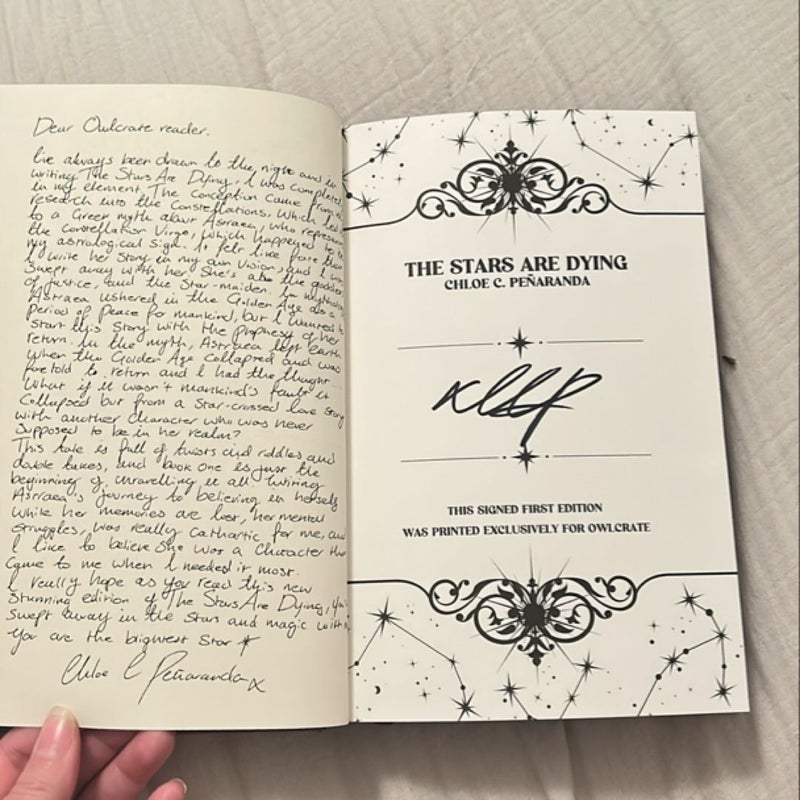 Dear Owlcrate reader,
I've always been drawn to the night and in
writing The Stars Are Dying, I was completely
in my element. The Conception came from
research into the Constellations. Which led
to a Greek myth about Astraea, who represents
the constellation Virgo, which happened to be
my astrological sign. It felt like fate that
I write her story in my own vision, and I was
swept away with her. She's also the goddess
of justice, and the Star-maiden. In mythology
Astraea ushered in the Golden Age as a
period of peace for mankind, but I wanted to
start this story with the prophesy of her
return. In the myth, Astraea left earth
when the Golden Age collapsed and was
foretold to return and I had the thought...
What if it wasn't mankind's fault it
Collapsed but from a Star-crossed love story
with another character who was never
supposed to be in her realm?
This tale is full of twists and riddles and
double takes, and book one is just the
beginning of unravelling it all. Writing
Astraea's journey to believing in herself
while her memories are lost, her mental
struggles, was really cathartic for me, and
I like to believe she was a character that
Came to me when I needed it most.
I really hope as you read this new
stunning edition of The Stars Are Dying, you're
swept away in the stars and magic with
You are the brightest Star
Chloe C Peñaranda x
THE STARS ARE DYING
CHLOE C. PEÑARANDA
THIS SIGNED FIRST EDITION
WAS PRINTED EXCLUSIVELY FOR OWLCRATE